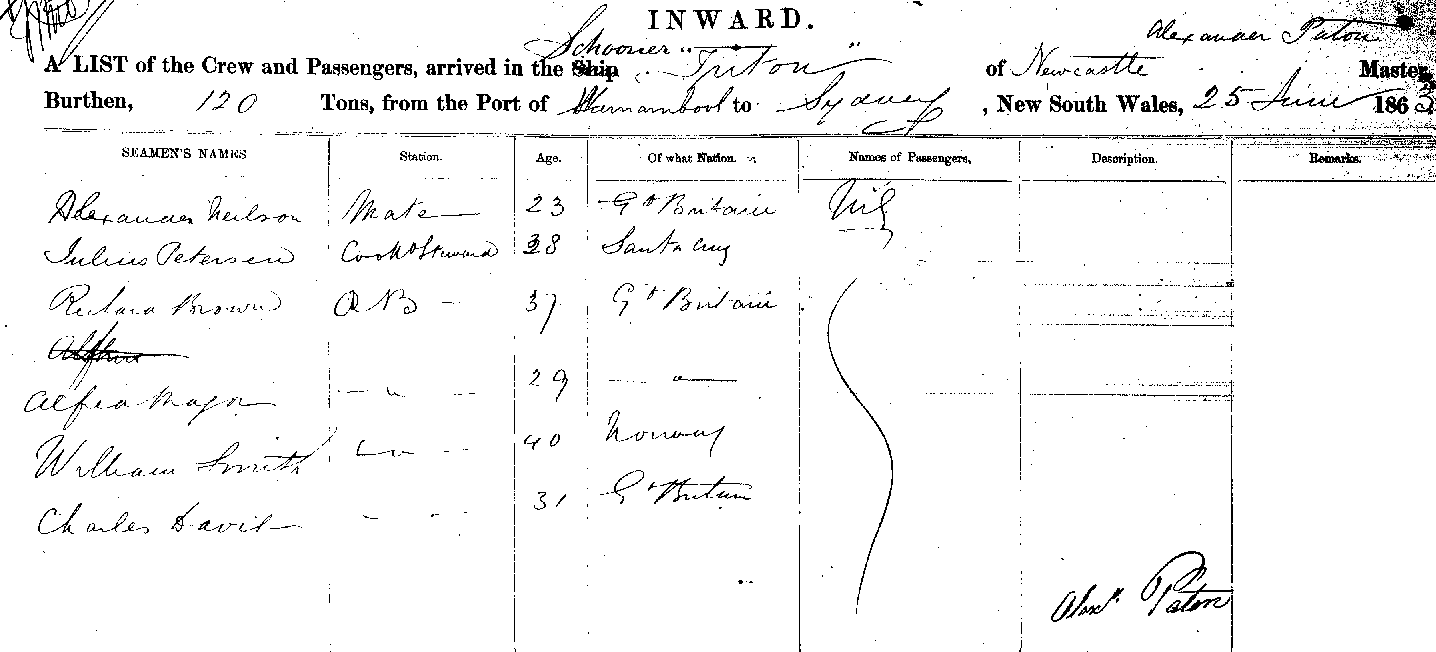 INWARD.
Alexander Paton
Schooner
A LIST of the Crew and Passengers, arrived in the Ship "Triton" of Newcastle Master,
Burthen, 120 Tons, from the Port of Warnambool to Sydney, New South Wales, 25 June 1863
SEAMEN'S NAMES Station. Age. Of what Nation. Names of Passengers, Description. Remarks.
Alexander Neilson Mate 23 Gt Britain Nil
Julius Petersen Cook & Steward 38 Santa Cruz
Richard Brown AB 37 Gt Britain
Alfred Major — " — 29 — " —
William Smith — " — 40 Norway
Charles David - - - 31 Gt Britain
Alexr Paton